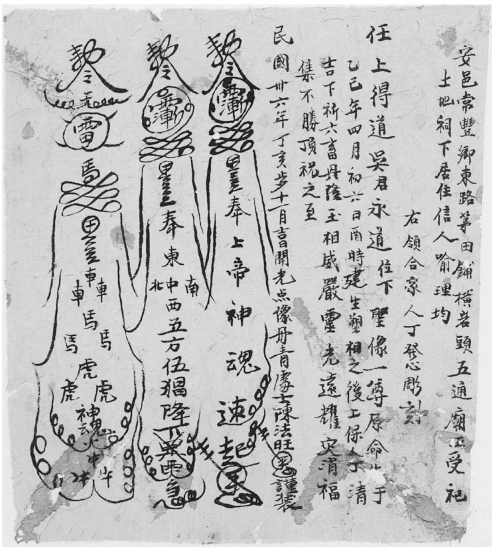 安邑常豐鄉東路茅田鋪橫岩頭五通廟王受祀
土地祠下居住信人喻理均
右領合家人丁發心彫刻
任上得道吳君永道位下聖像一尊原命
乙巳年四月初六日酉時建生塑相之後上保人丁清
吉下祈六畜丹隆玉相威嚴靈光遠耀安消福
集不勝頂祝之至
民國卅六年丁亥歲十一月吉日開光点像丹青處士陳法旺謹裝
奉上帝神魂速起
奉東中西五方伍猖降
南
北
雷
馬
車車
馬馬
虎虎
神魂